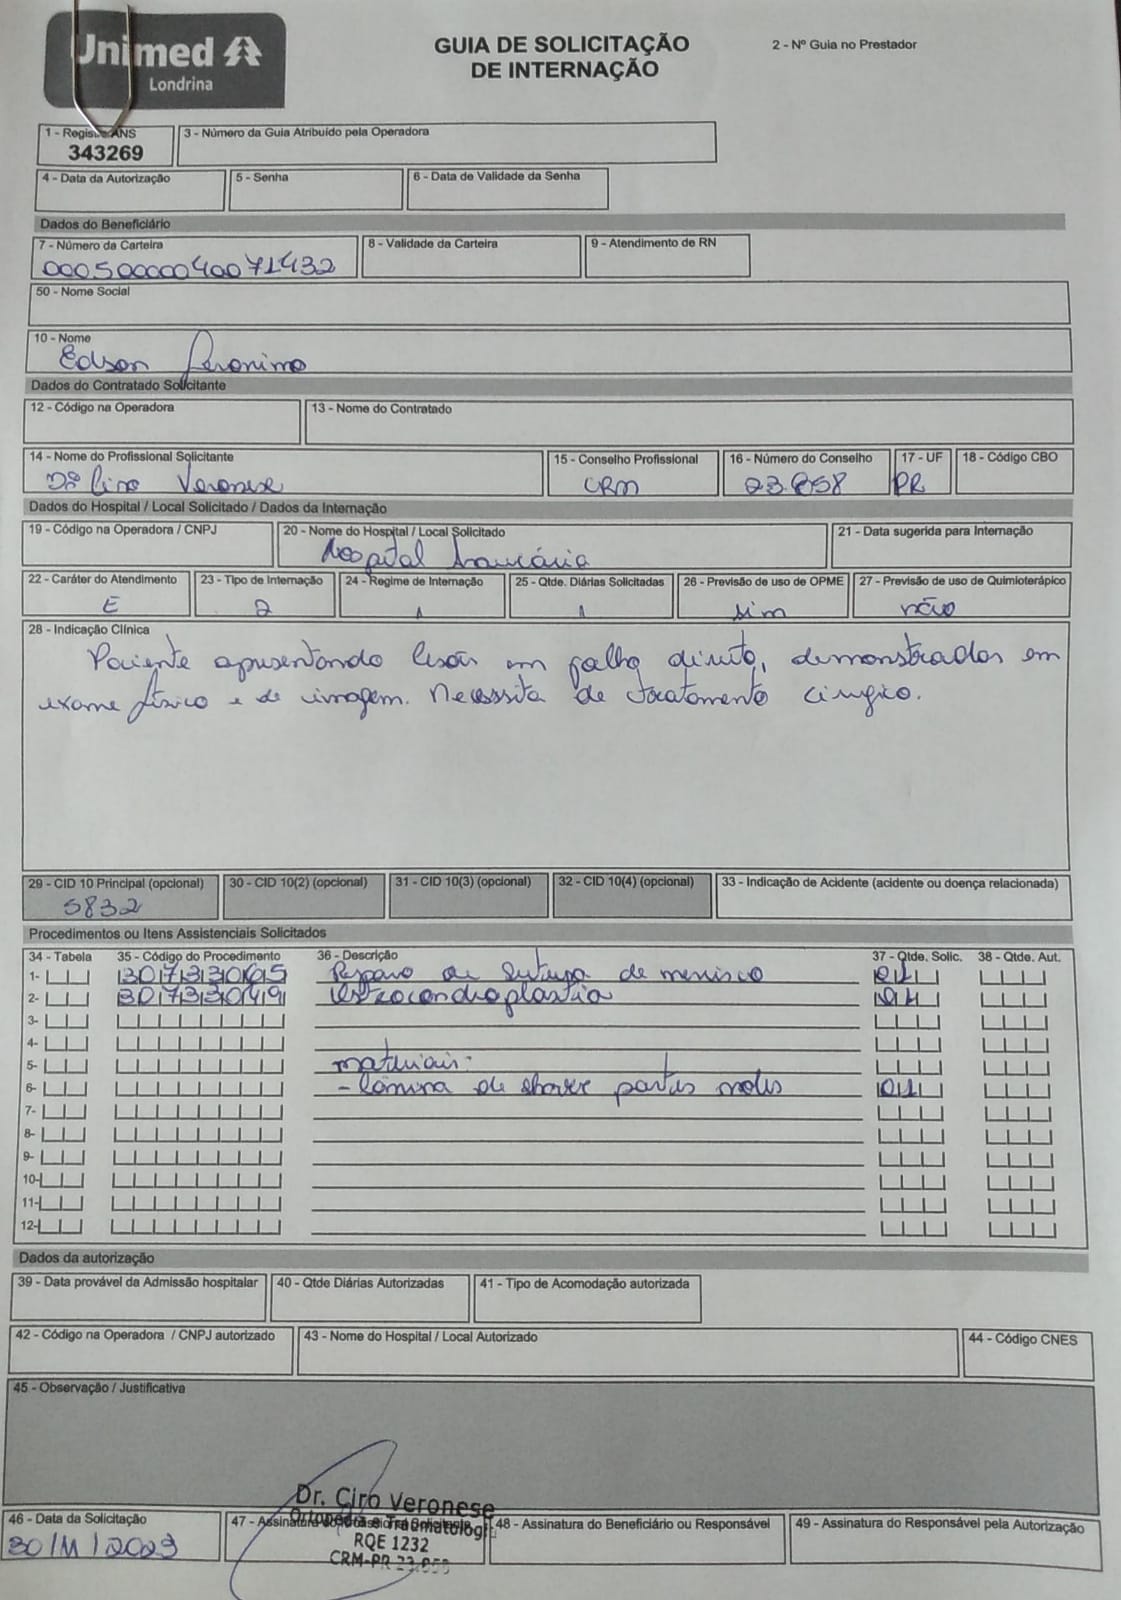 Unimed
Londrina
GUIA DE SOLICITAÇÃO
DE INTERNAÇÃO
2 - Nº Guia no Prestador
1 - Registro ANS
343269
3 - Número da Guia Atribuído pela Operadora
4 - Data da Autorização
5 - Senha
6 - Data de Validade da Senha
Dados do Beneficiário
7 - Número da Carteira
00050000040071432
8 - Validade da Carteira
9 - Atendimento de RN
50 - Nome Social
10 - Nome
Edson Jeronimo
Dados do Contratado Solicitante
12 - Código na Operadora
13 - Nome do Contratado
14 - Nome do Profissional Solicitante
Drº Ciro Veronese
15 - Conselho Profissional
CRM
16 - Número do Conselho
23.858
17 - UF
PR
18 - Código CBO
Dados do Hospital / Local Solicitado / Dados da Internação
19 - Código na Operadora / CNPJ
20 - Nome do Hospital / Local Solicitado
Hospital Araucária
21 - Data sugerida para Internação
22 - Caráter do Atendimento
E
23 - Tipo de Internação
2
24 - Regime de Internação
1
25 - Qtde. Diárias Solicitadas
1
26 - Previsão de uso de OPME
sim
27 - Previsão de uso de Quimioterápico
não
28 - Indicação Clínica
Paciente apresentando lesão em joelho direito, demonstrados em
exame físico e de imagem. Necessita de tratamento cirugico.
29 - CID 10 Principal (opcional)
S832
30 - CID 10(2) (opcional)
31 - CID 10(3) (opcional)
32 - CID 10(4) (opcional)
33 - Indicação de Acidente (acidente ou doença relacionada)
Procedimentos ou Itens Assistenciais Solicitados
34 - Tabela
35 - Código do Procedimento
36 - Descrição
37 - Qtde. Solic.
38 - Qtde. Aut.
1- 30733065 Reparo ou sutura de menisco 01
2- 30733049 Osteocondroplastia 01
3-
4-
5- materiais:
6- - lâmina de shaver partes moles 01
7-
8-
9-
10-
11-
12-
Dados da autorização
39 - Data provável da Admissão hospitalar
40 - Qtde Diárias Autorizadas
41 - Tipo de Acomodação autorizada
42 - Código na Operadora / CNPJ autorizado
43 - Nome do Hospital / Local Autorizado
44 - Código CNES
45 - Observação / Justificativa
46 - Data da Solicitação
30/11/2023
47 - Assinatura do Profissional Solicitante
Dr. Ciro Veronese
Ortopedia e Traumatologi
RQE 1232
CRM-PR 23.858
48 - Assinatura do Beneficiário ou Responsável
49 - Assinatura do Responsável pela Autorização